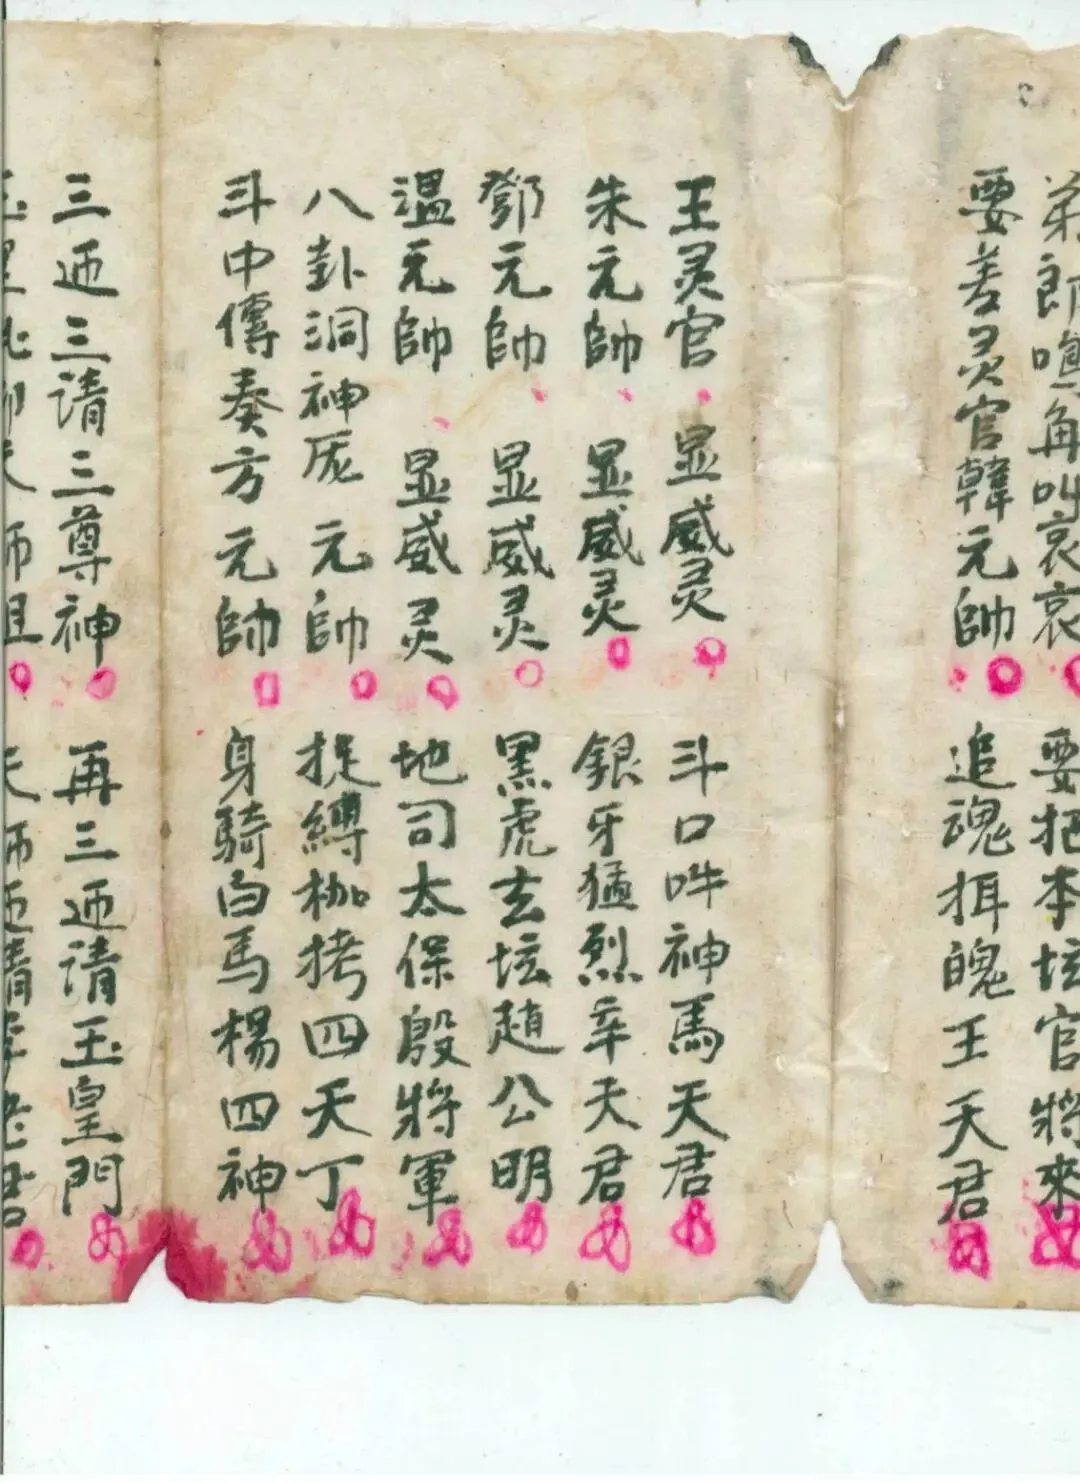 弟郎鳴角叫哀哀 要把本坛官將來
要善灵官韓元帥 追魂挕魄王天君
王灵官 显威灵 斗口吽神馬天君
朱元帥 显威灵 銀牙猛烈辛天君
鄧元帥 显威灵 黑虎玄坛趙公明
温元帥 显威灵 地司太保殷將軍
八卦洞神厐元帥 捉縛枷拷四天丁
斗中傳奏方元帥 身騎白馬楊四神
三迊三請三尊神 再三迊請玉皇門
玉皇 師祖 天師迊請李老君